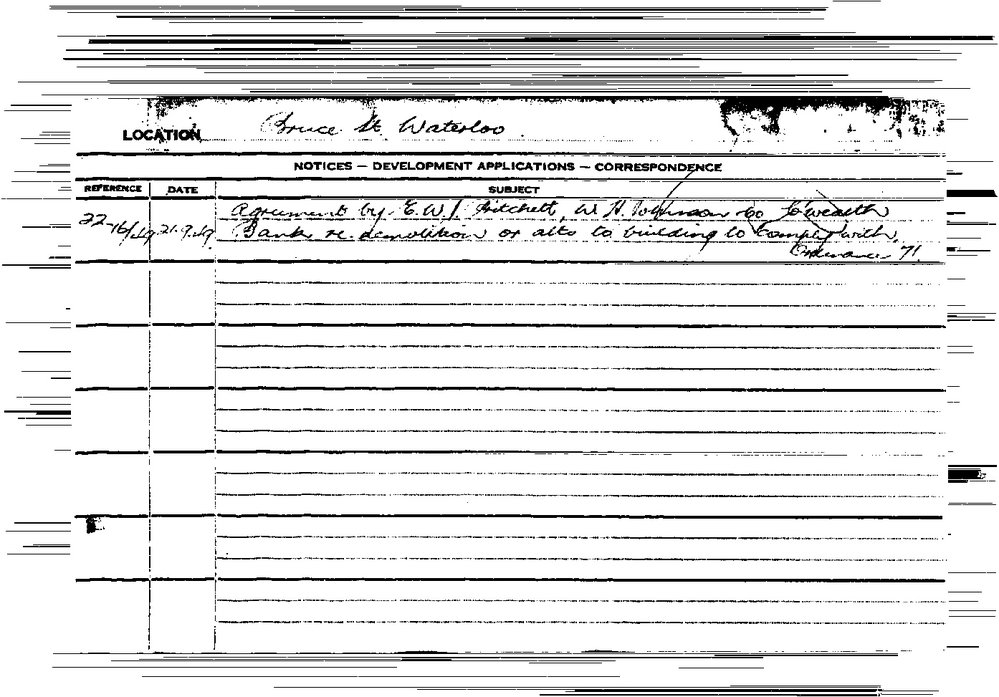 LOCATION Bruce St. Waterloo
NOTICES — DEVELOPMENT APPLICATIONS — CORRESPONDENCE
REFERENCE DATE SUBJECT
Agreement by E.W.J. Hitchell, W. H. Johnson to C'wealth
21.9.49 Bank re demolition or alts to building to comply with
Ordinance 71.